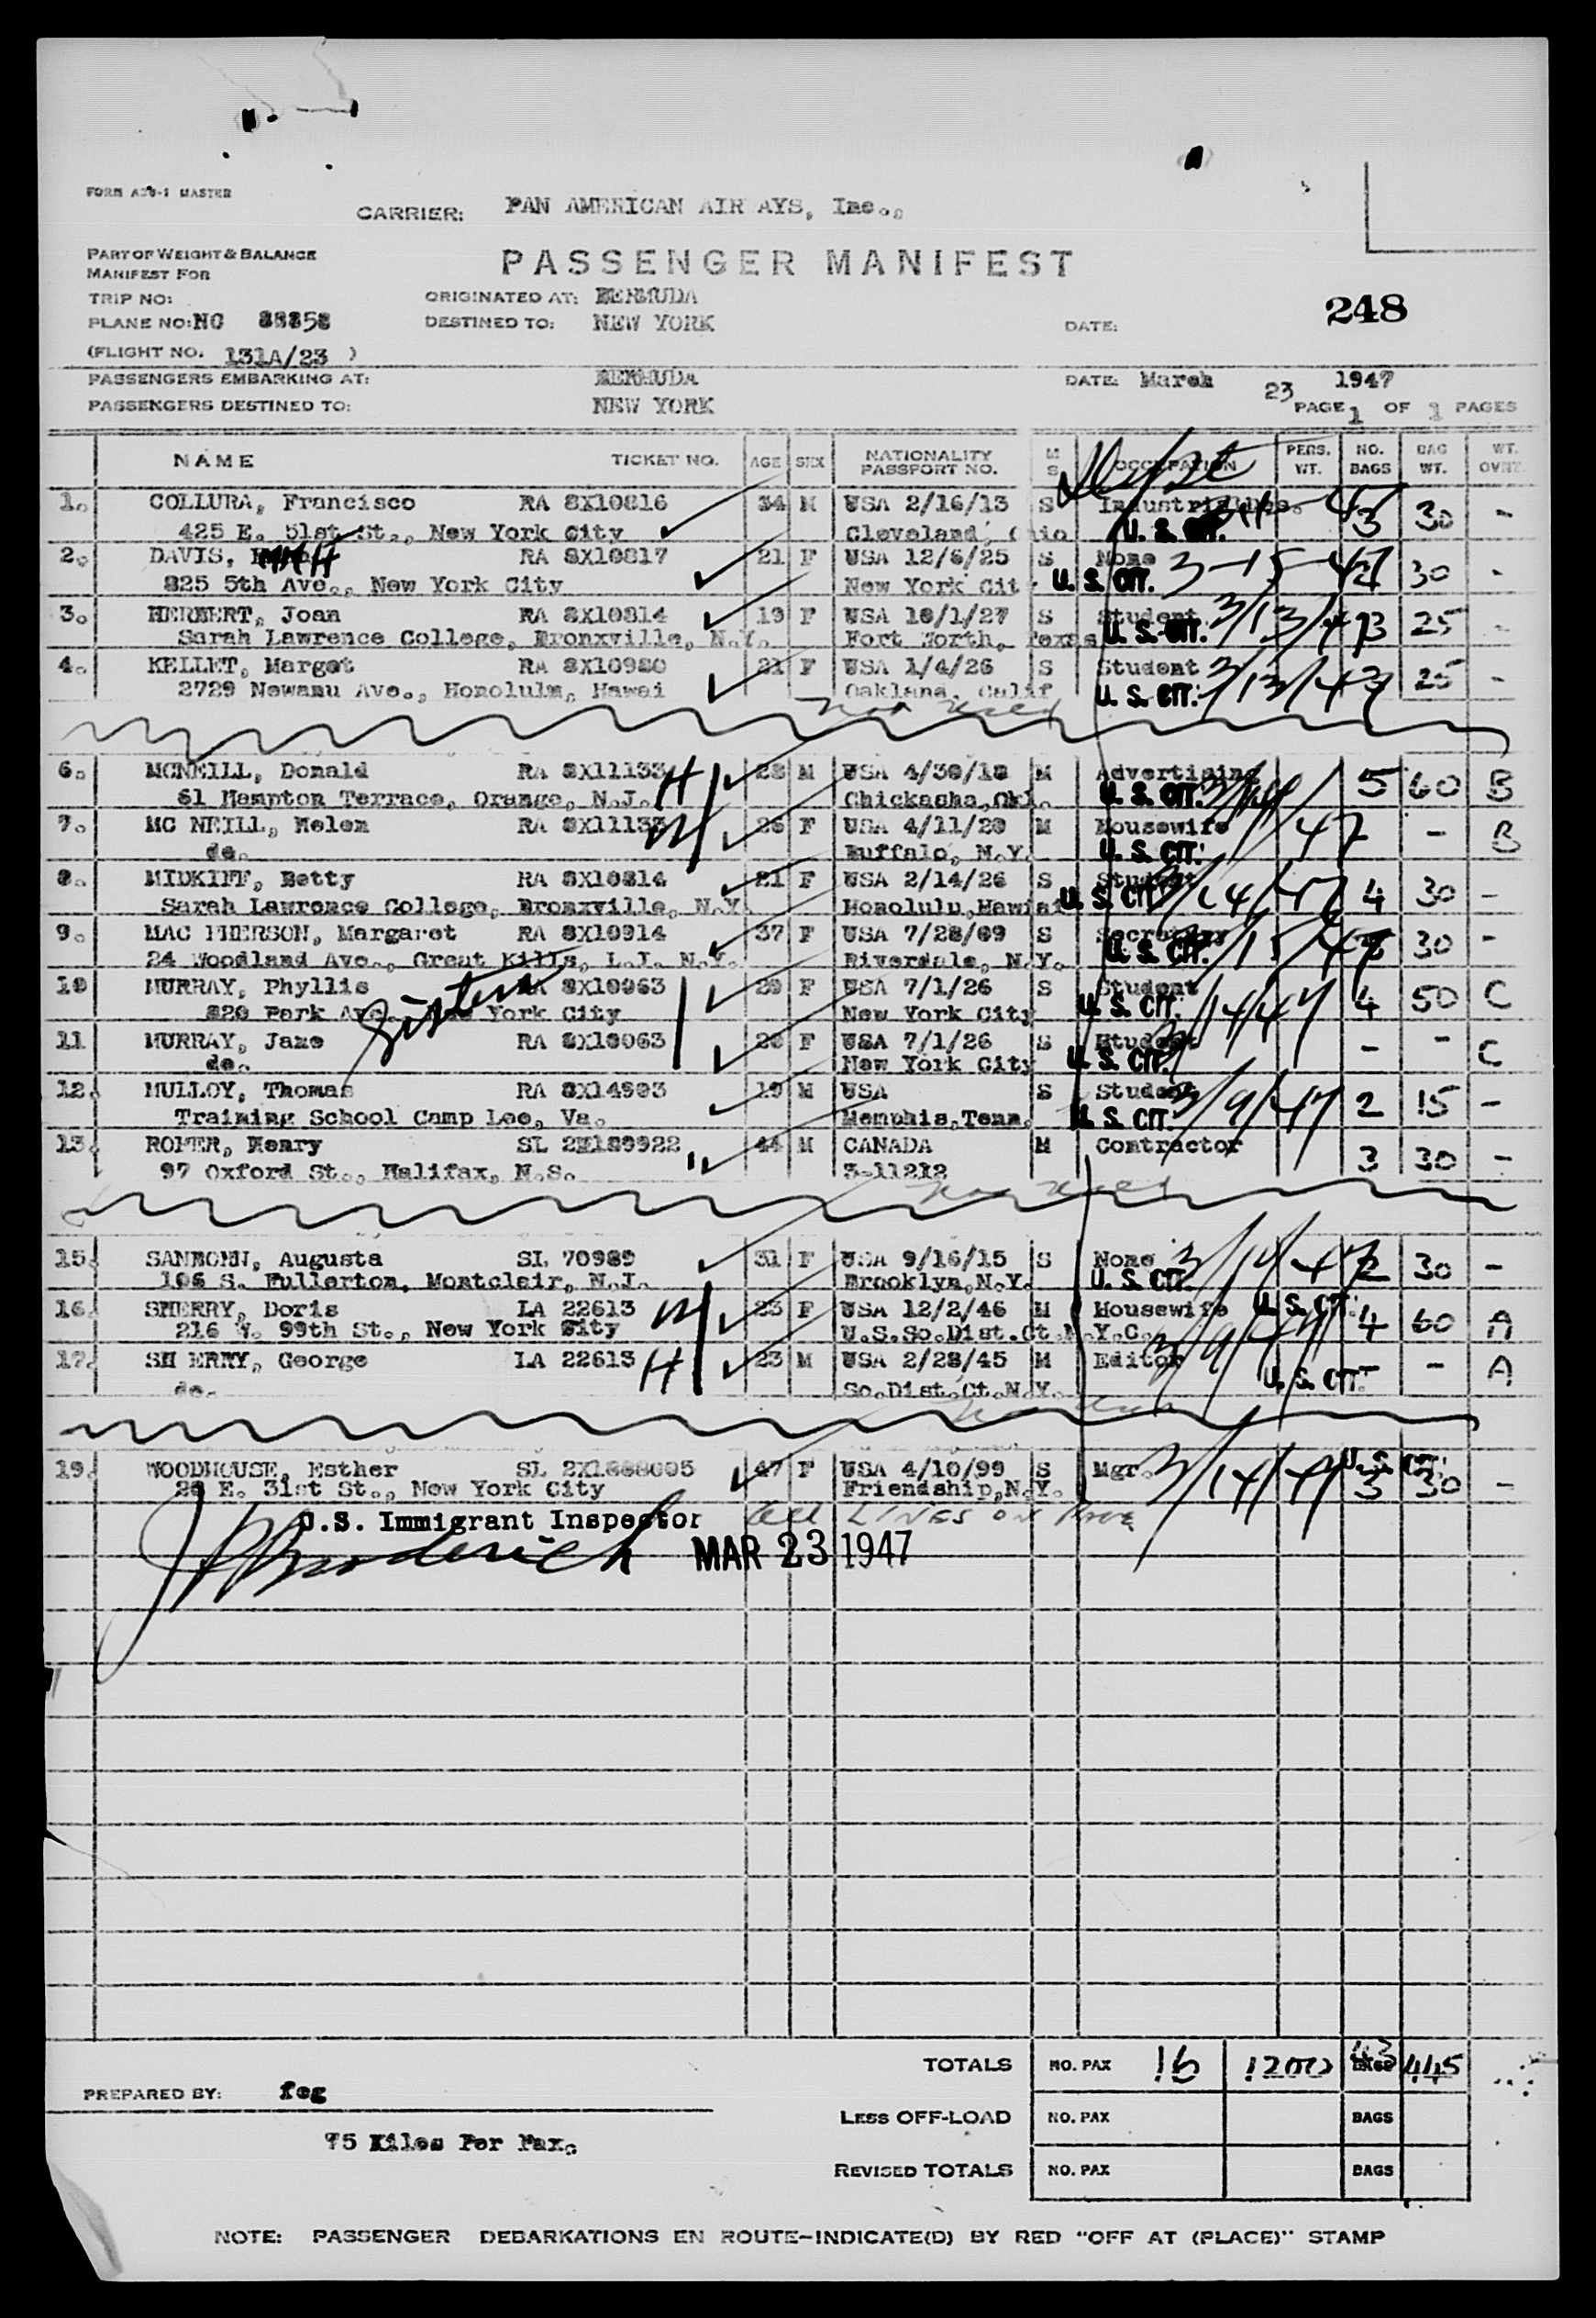 FORM A20-1 MASTER
CARRIER: PAN AMERICAN AIR AYS, Inc.,
PART OF WEIGHT & BALANCE
MANIFEST FOR
PASSENGER MANIFEST
TRIP NO: ORIGINATED AT: BERMUDA
248
PLANE NO: NC 88858 DESTINED TO: NEW YORK DATE:
(FLIGHT NO. 131A/23 )
PASSENGERS EMBARKING AT: BERMUDA DATE: March 23 1947
PASSENGERS DESTINED TO: NEW YORK PAGE 1 OF 1 PAGES
NAME TICKET NO. AGE SEX NATIONALITY PASSPORT NO. M S OCCUPATION PERS. WT. NO. BAGS BAG WT. WT. OVNT.
1. COLLURA, Francisco RA 8X10816 34 M USA 2/16/13 S 3 30 -
425 E. 51st St., New York City Cleveland, Ohio U. S. CIT.
2. DAVIS, RA 8X10817 21 F USA 12/6/25 S None 3-15-47 30 -
825 5th Ave., New York City New York Cit U. S. CIT.
3. HERBERT, Joan RA 8X10814 19 F USA 10/1/27 S Student 3/13/47 3 25 -
Sarah Lawrence College, Bronxville, N.Y. Fort Worth, Texas U. S. CIT.
4. KELLET, Margot RA 8X10980 21 F USA 1/4/26 S Student 3/13/47 25 -
2729 Nowanu Ave., Honolulu, Hawai Oakland, Calif U. S. CIT.
Not Used
6. MCNEILL, Donald RA 8X11133 H 28 M USA 4/30/18 M Advertising 5 60 B
61 Hampton Terrace, Orange, N.J. Chickasha, Okl. U. S. CIT.
7. MC NEILL, Helen RA 8X11133 W 26 F USA 4/11/20 M Housewife 47 - B
do. Buffalo, N.Y. U. S. CIT.
8. MIDKIFF, Betty RA 8X10814 21 F USA 2/14/26 S Student 3/14/47 4 30 -
Sarah Lawrence College, Bronxville, N.Y. Honolulu, Hawiai U. S. CIT.
9. MAC PHERSON, Margaret RA 8X10914 37 F USA 7/28/09 S Secretary 30 -
24 Woodland Ave., Great Kills, L.I. N.Y. Riverdale, N.Y. U. S. CIT.
10 MURRAY, Phyllis RA 8X10063 20 F USA 7/1/26 S Student 3/14/47 4 50 C
820 Park Ave. York City New York City U. S. CIT.
Sisters
11 MURRAY, Jane RA 8X10063 20 F USA 7/1/26 S Student - - C
do. New York City U. S. CIT.
12. MULLOY, Thomas RA 8X14903 19 M USA S Student 3/9/47 2 15 -
Training School Camp Lee, Va. Memphis, Tenn. U. S. CIT.
13. ROMER, Henry 44 M CANADA M Contractor 3 30 -
97 Oxford St., Halifax, N.S. 3-11212
Not Used
15. Augusta SL 70989 31 F USA 9/16/15 S None 2 30 -
106 S. Fullerton, Montclair, N.J. Brooklyn, N.Y. U. S. CIT.
16. SHERRY, Doris LA 22613 W 23 F USA 12/2/46 M Housewife U. S. CIT. 4 60 A
216 W. 99th St., New York City U.S. So. Dist. Ct. N.Y.C. 3/9/47
17. SH ERRY, George LA 22613 H 23 M USA 2/28/45 M Editor - A
do. So. Dist. Ct. N.Y. U. S. CIT.
19. WOODHOUSE, Esther 47 F USA 4/10/99 S Mgr. 3/14/47 U. S. CIT. 3 30 -
20 E. 31st St., New York City Friendship, N.Y.
U.S. Immigrant Inspector All LINES ON
MAR 23 1947
TOTALS NO. PAX 16 1200 43 BAGS 445
PREPARED BY: feg
LESS OFF-LOAD NO. PAX BAGS
75 Kilos Per Pax.
REVISED TOTALS NO. PAX BAGS
NOTE: PASSENGER DEBARKATIONS EN ROUTE-INDICATE(D) BY RED "OFF AT (PLACE)" STAMP